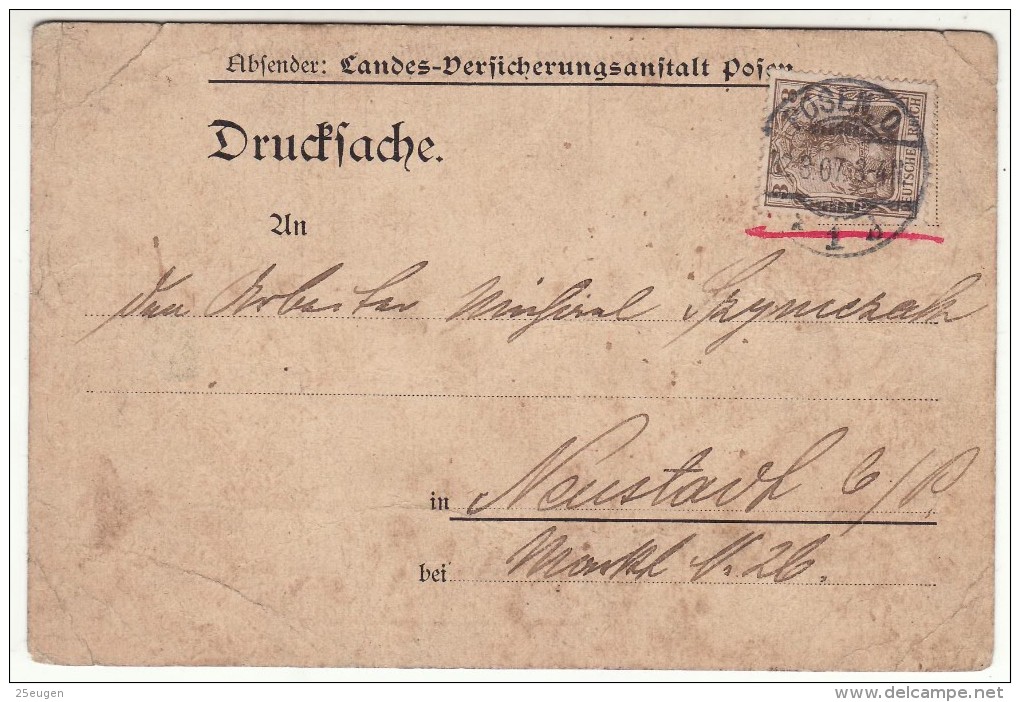 Absender: Landes-Versicherungsanstalt Posen
Drucksache.
3 3
DEUTSCHES REICH
POSEN O.
8.07.3-4N
* 1 b
An
den Arbeiter Michael Szymczak
in Neustadt b/P.
bei Markt N. 26.
25eugen
delcampe.net